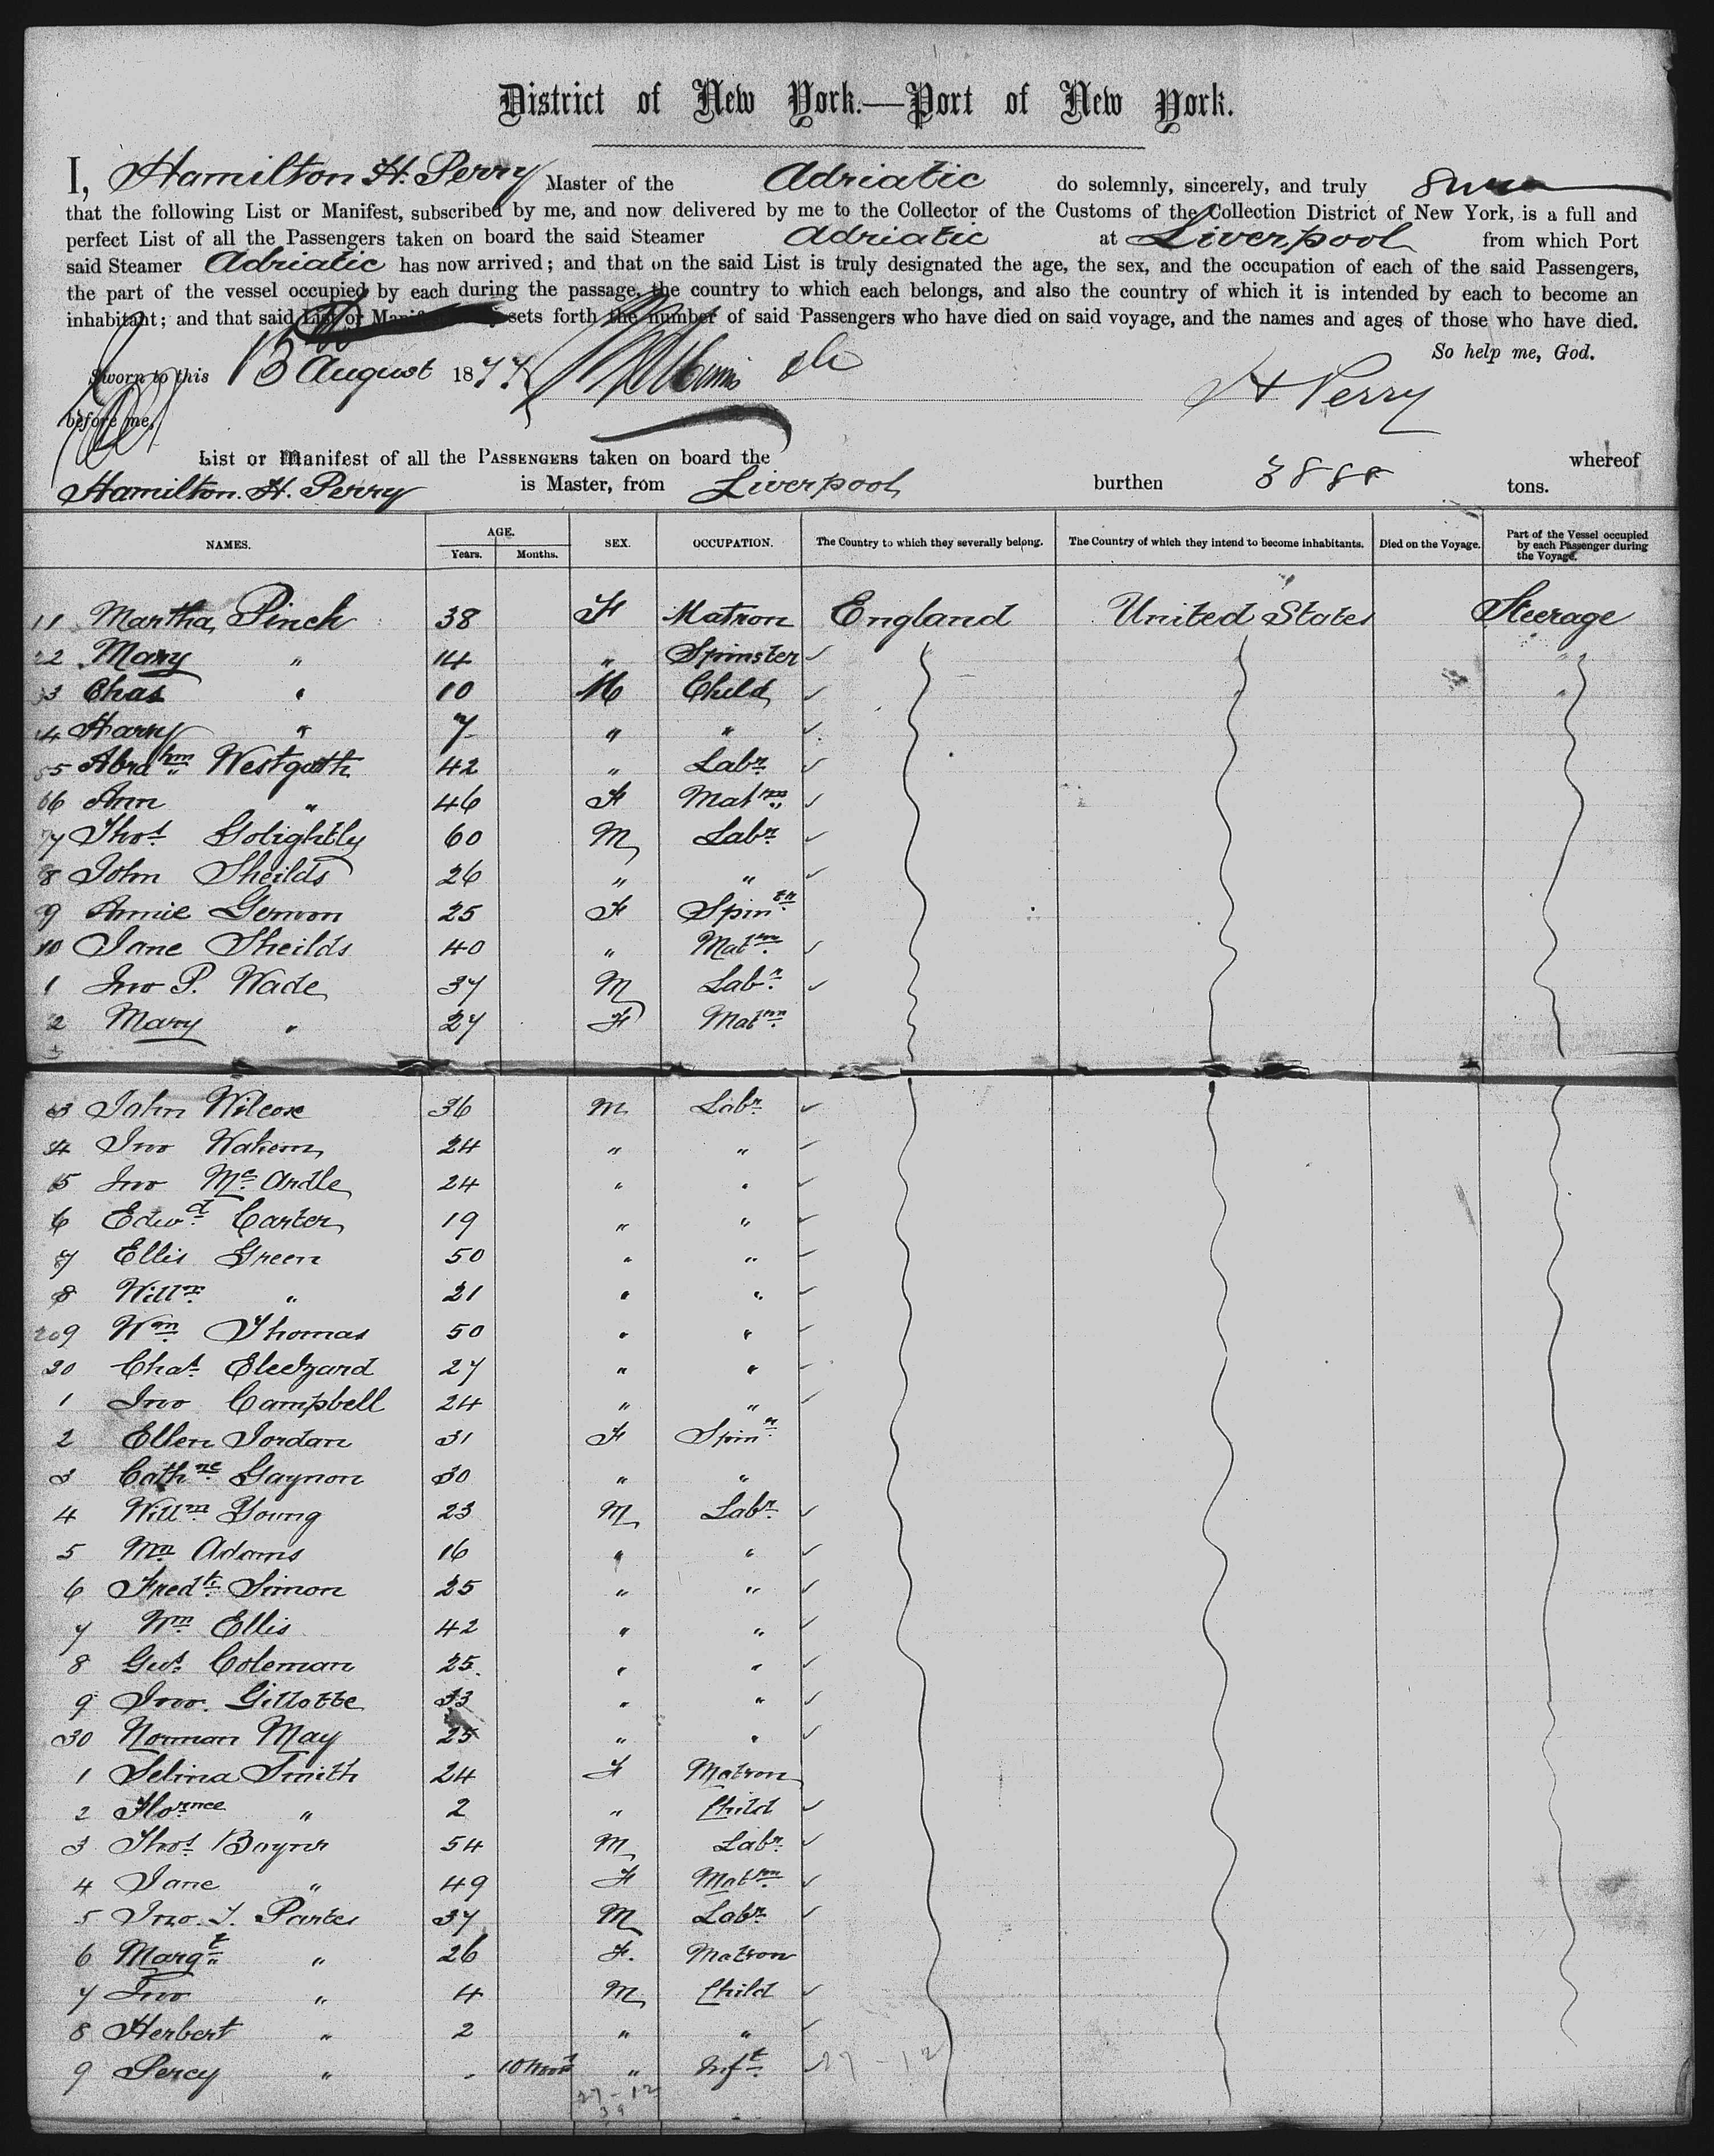 District of New York.—Port of New York.
I, Hamilton H. Perry Master of the Adriatic do solemnly, sincerely, and truly swear
that the following List or Manifest, subscribed by me, and now delivered by me to the Collector of the Customs of the Collection District of New York, is a full and
perfect List of all the Passengers taken on board the said Steamer Adriatic at Liverpool from which Port
said Steamer Adriatic has now arrived; and that on the said List is truly designated the age, the sex, and the occupation of each of the said Passengers,
the part of the vessel occupied by each during the passage, the country to which each belongs, and also the country of which it is intended by each to become an
inhabitant; and that said List or Manifest sets forth the number of said Passengers who have died on said voyage, and the names and ages of those who have died.
So help me, God.
Sworn to this 13 August 1877
H Perry
before me,
List or Manifest of all the PASSENGERS taken on board the whereof
Hamilton. H. Perry is Master, from Liverpool burthen 3888 tons.
NAMES. AGE. Years. Months. SEX. OCCUPATION. The Country to which they severally belong. The Country of which they intend to become inhabitants. Died on the Voyage. Part of the Vessel occupied by each Passenger during the Voyage.
11 Martha Pinch 38 F Matron England United States Steerage
22 Mary " 14 " Spinster
33 Chas " 10 M Child
44 Harry " 7 " "
55 Abrahm Westgarth 42 " Labr
66 Ann " 46 F Matrn
7 Thos Golightly 60 M Labr
8 John Sheilds 26 " "
9 Annie Gernon 25 F Spinstr
10 Jane Sheilds 40 " Matrn
1 Jno P. Wade 37 M Labr
2 Mary " 27 F Matrn
3 John Wilcox 36 M Labr
4 Jno Wakem 24 " "
5 Jno Mc Ardle 24 " "
6 Edwd Carter 19 " "
7 Ellis Green 50 " "
8 Willm " 21 " "
9 Wm Thomas 50 " "
20 Chas 27 " "
1 Jno Campbell 24 " "
2 Ellen Jordan 31 F Spinr
3 Cathne Gaynon 30 " "
4 Willm Young 23 M Labr
5 Adams 16 " "
6 Fredk Simon 25 " "
7 Wm Ellis 42 " "
8 Coleman 25 " "
9 Jno. Gillotte 33 " "
30 Norman May 25 " "
1 Selina Smith 24 F Matron
2 Flornce " 2 " Child
3 Thos 54 M Labr
4 Jane " 49 F Matrn
5 Jno. T. Partes 37 M Labr
6 Margt " 26 F. Matron
7 Jno " 4 M Child
8 Herbert " 2 " "
9 Percy " - 10 Mos " Inft 27-12
27-12
39